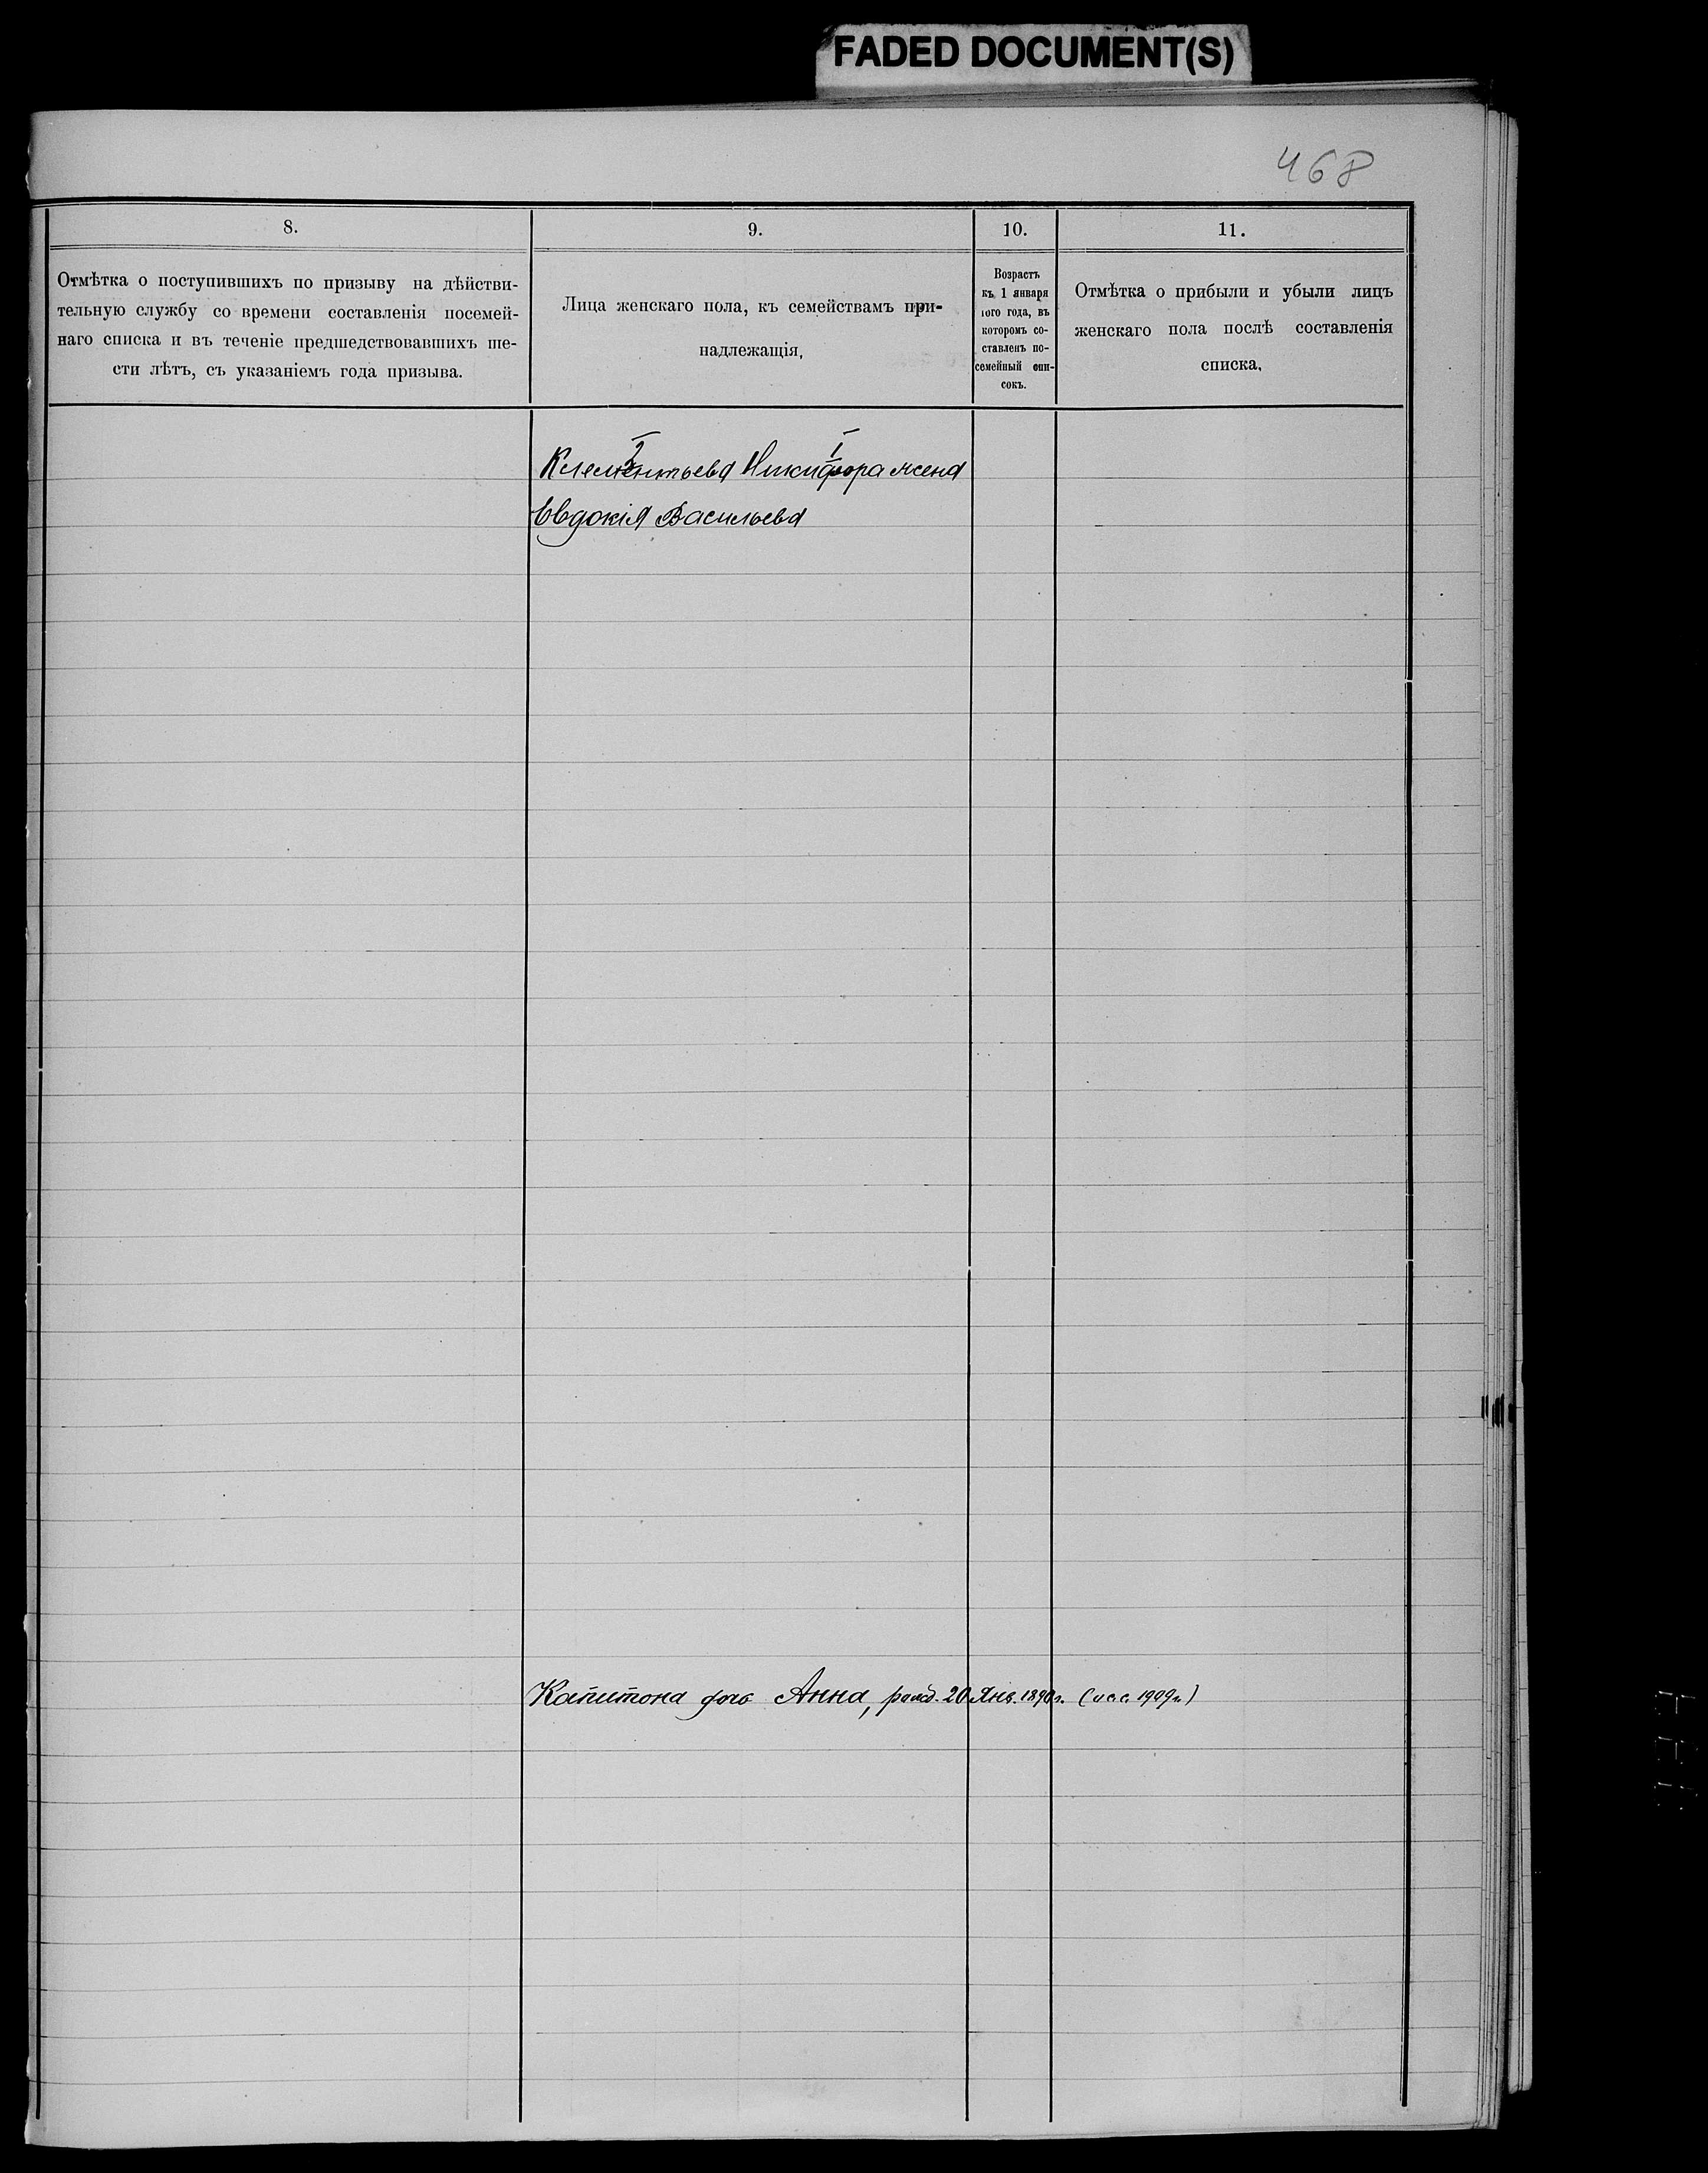 FADED DOCUMENT(S)
468
8.
9.
10.
11.
Отмѣтка о поступившихъ по призыву на дѣйстви-
тельную службу со времени составленія посемей-
наго списка и въ теченіе предшедствовавшихъ ше-
сти лѣтъ, съ указаніемъ года призыва.
Лица женскаго пола, къ семействамъ при-
надлежащія,
Возрастъ
къ 1 января
того года, въ
которомъ со-
ставленъ по-
семейный спи-
сокъ.
Отмѣтка о прибыли и убыли лицъ
женскаго пола послѣ составленія
списка,
2 1
Клементьева Никифора жена
Евдокія Васильева
Капитона дочь Анна, рожд. 20 Янв. 1890 г. ( 1909 г.)